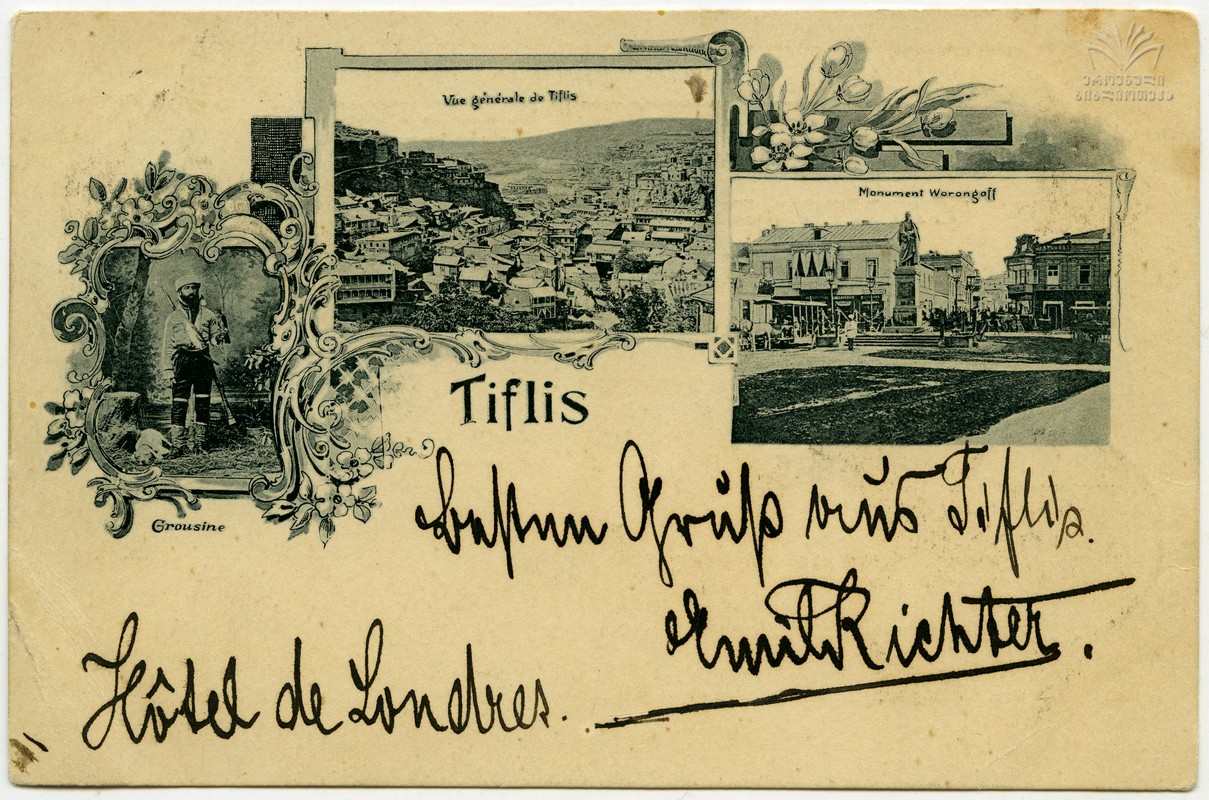 ეროვნული
ბიბლიოთეკა
Vue générale de Tiflis
Monument Worongoff
Tiflis
Grousine
besten Gruß aus Tiflis.
Emil Richter.
Hôtel de Londres.